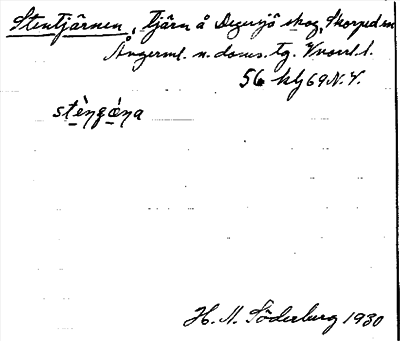 Stentjärnen, tjärn å Degersjö skog, Skorped sn
Ångerml. n. doms. tg. Vnorrl. l.
56 kbl 69 N. V.
stèŋgǫ́ŋa
H. N. Söderberg 1930